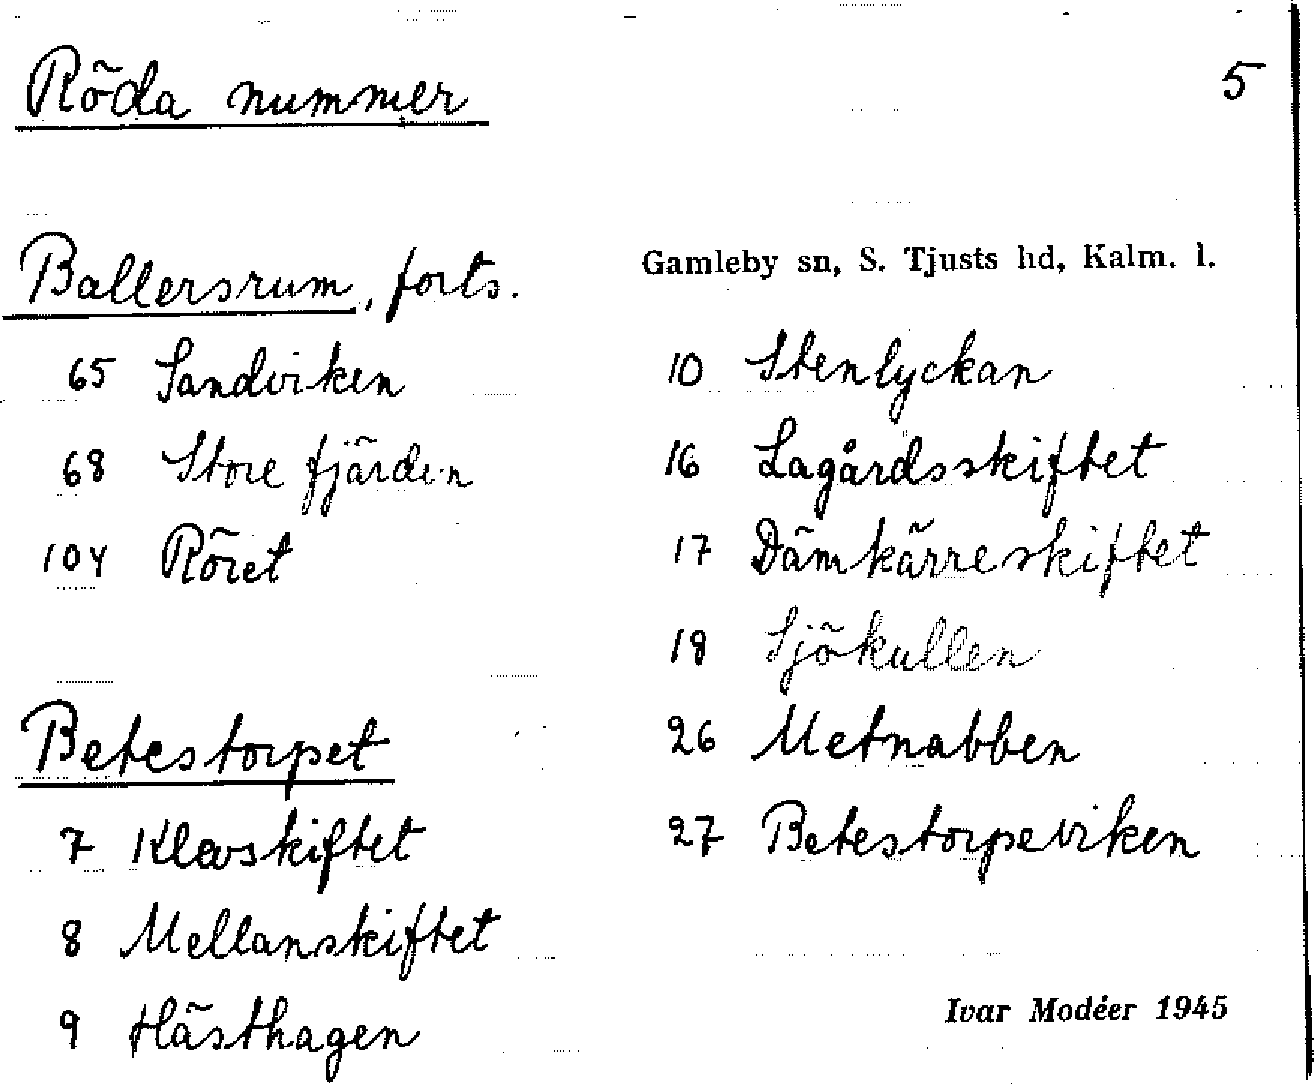 Röda nummer
5
Ballersrum, forts.
65 Sandviken
68 Store fjärden
104 Röret
Betestorpet
7 Klevskiftet
8 Mellanskiftet
9 Hästhagen
Gamleby sn, S. Tjusts hd, Kalm. l.
10 Stenlyckan
16 Lagårdsskiftet
17 Dämkärreskiftet
18 Sjökullen
26 Metnabben
27 Betestorpeviken
Ivar Modéer 1945